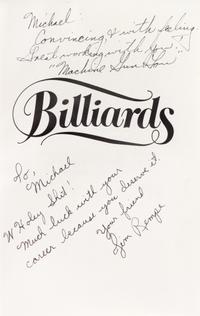 Michael:
Convincing, & with feeling.
Great working with you!
"Machine Gun Lou"
Billiards
To,
Michael
W Holey Shit!
Much luck with your
career because you deserve it.
Your friend
Jim Rempe